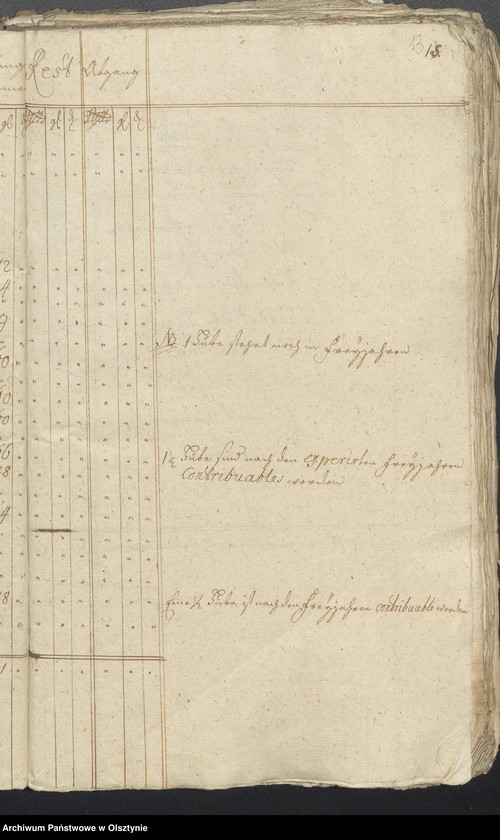 13 15.
Rest Abgang
gl ₰ gl ₰
12
4
NB 1 Hube stehet noch in Freyjahren
1½ Hube sind nach den experirten Freyjahren
Contribuables worden
4
Eine ½ Hube ist nach den Freyjahren contribuable worden
8
1
Archiwum Państwowe w Olsztynie